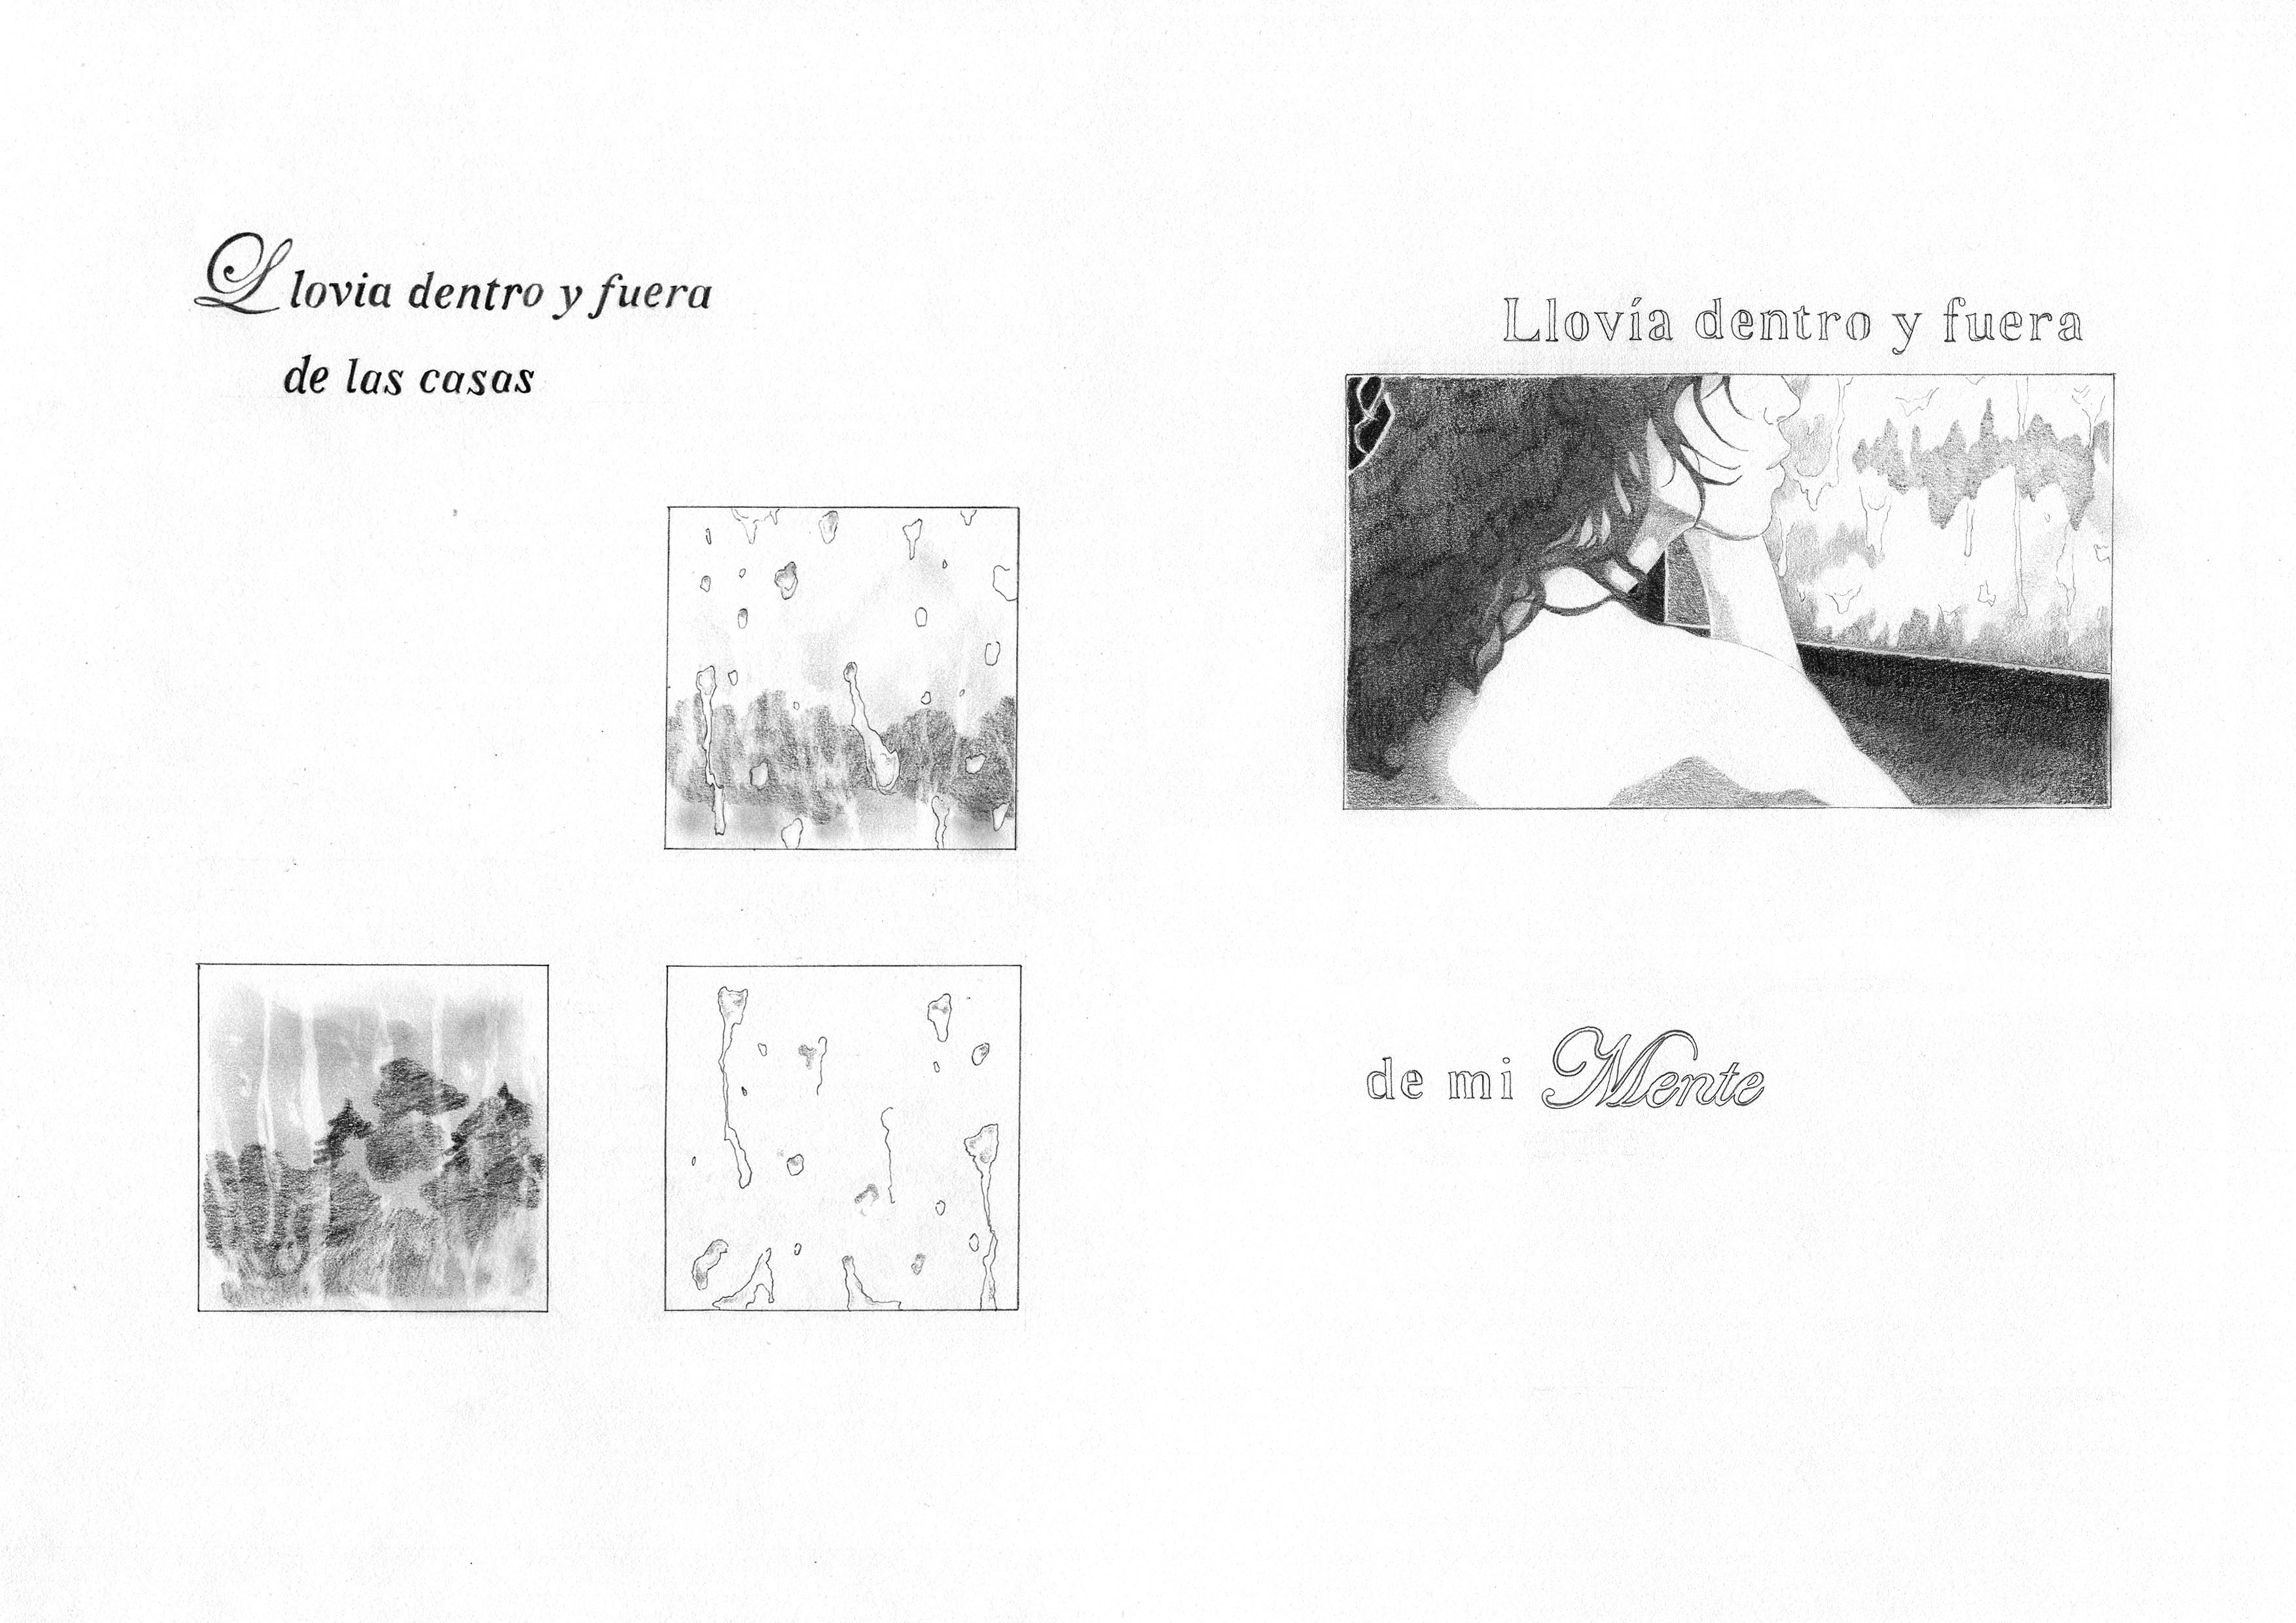 Llovia dentro y fuera
de las casas
Llovía dentro y fuera
de mi Mente